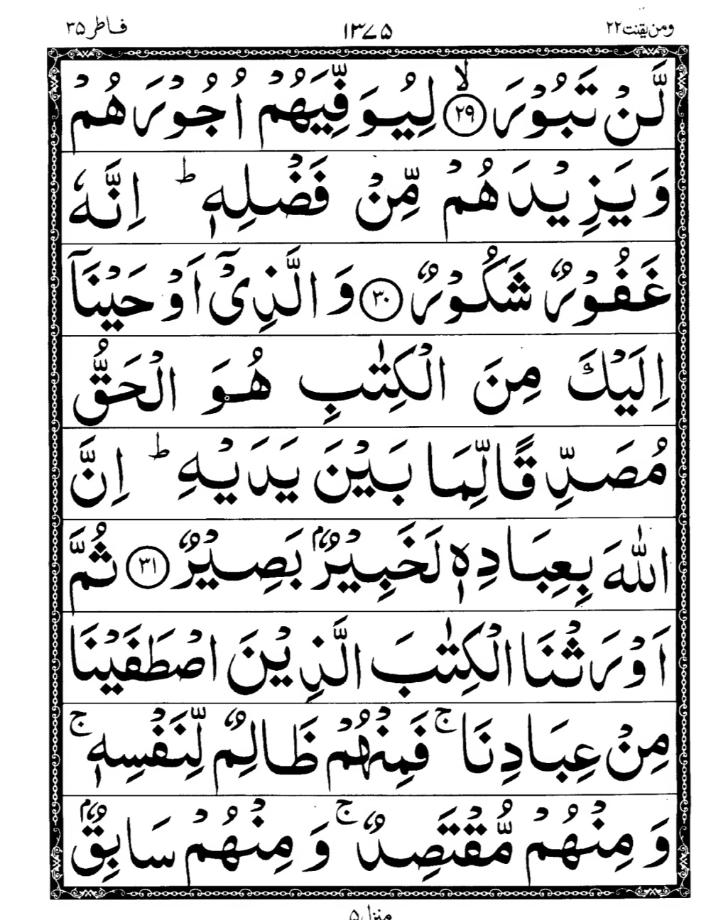 ومن یقنت ۲۲ ۱۳۷۵ فاطر ۳۵
لَّنْ تَبُوْرَ ﴿۲۹﴾ۙ لِيُوَفِّيَهُمْ اُجُوْرَهُمْ
وَيَزِيْدَهُمْ مِّنْ فَضْلِهٖ ؕ اِنَّهٗ
غَفُوْرٌ شَكُوْرٌ ﴿۳۰﴾ وَالَّذِيْۤ اَوْحَيْنَاۤ
اِلَيْكَ مِنَ الْكِتٰبِ هُوَ الْحَقُّ
مُصَدِّقًا لِّمَا بَيْنَ يَدَيْهِ ؕ اِنَّ
اللّٰهَ بِعِبَادِهٖ لَخَبِيْرٌۢ بَصِيْرٌ ﴿۳۱﴾ ثُمَّ
اَوْرَثْنَا الْكِتٰبَ الَّذِيْنَ اصْطَفَيْنَا
مِنْ عِبَادِنَا ۚ فَمِنْهُمْ ظَالِمٌ لِّنَفْسِهٖ ۚ
وَمِنْهُمْ مُّقْتَصِدٌ ۚ وَمِنْهُمْ سَابِقٌۢ
منزل ۵